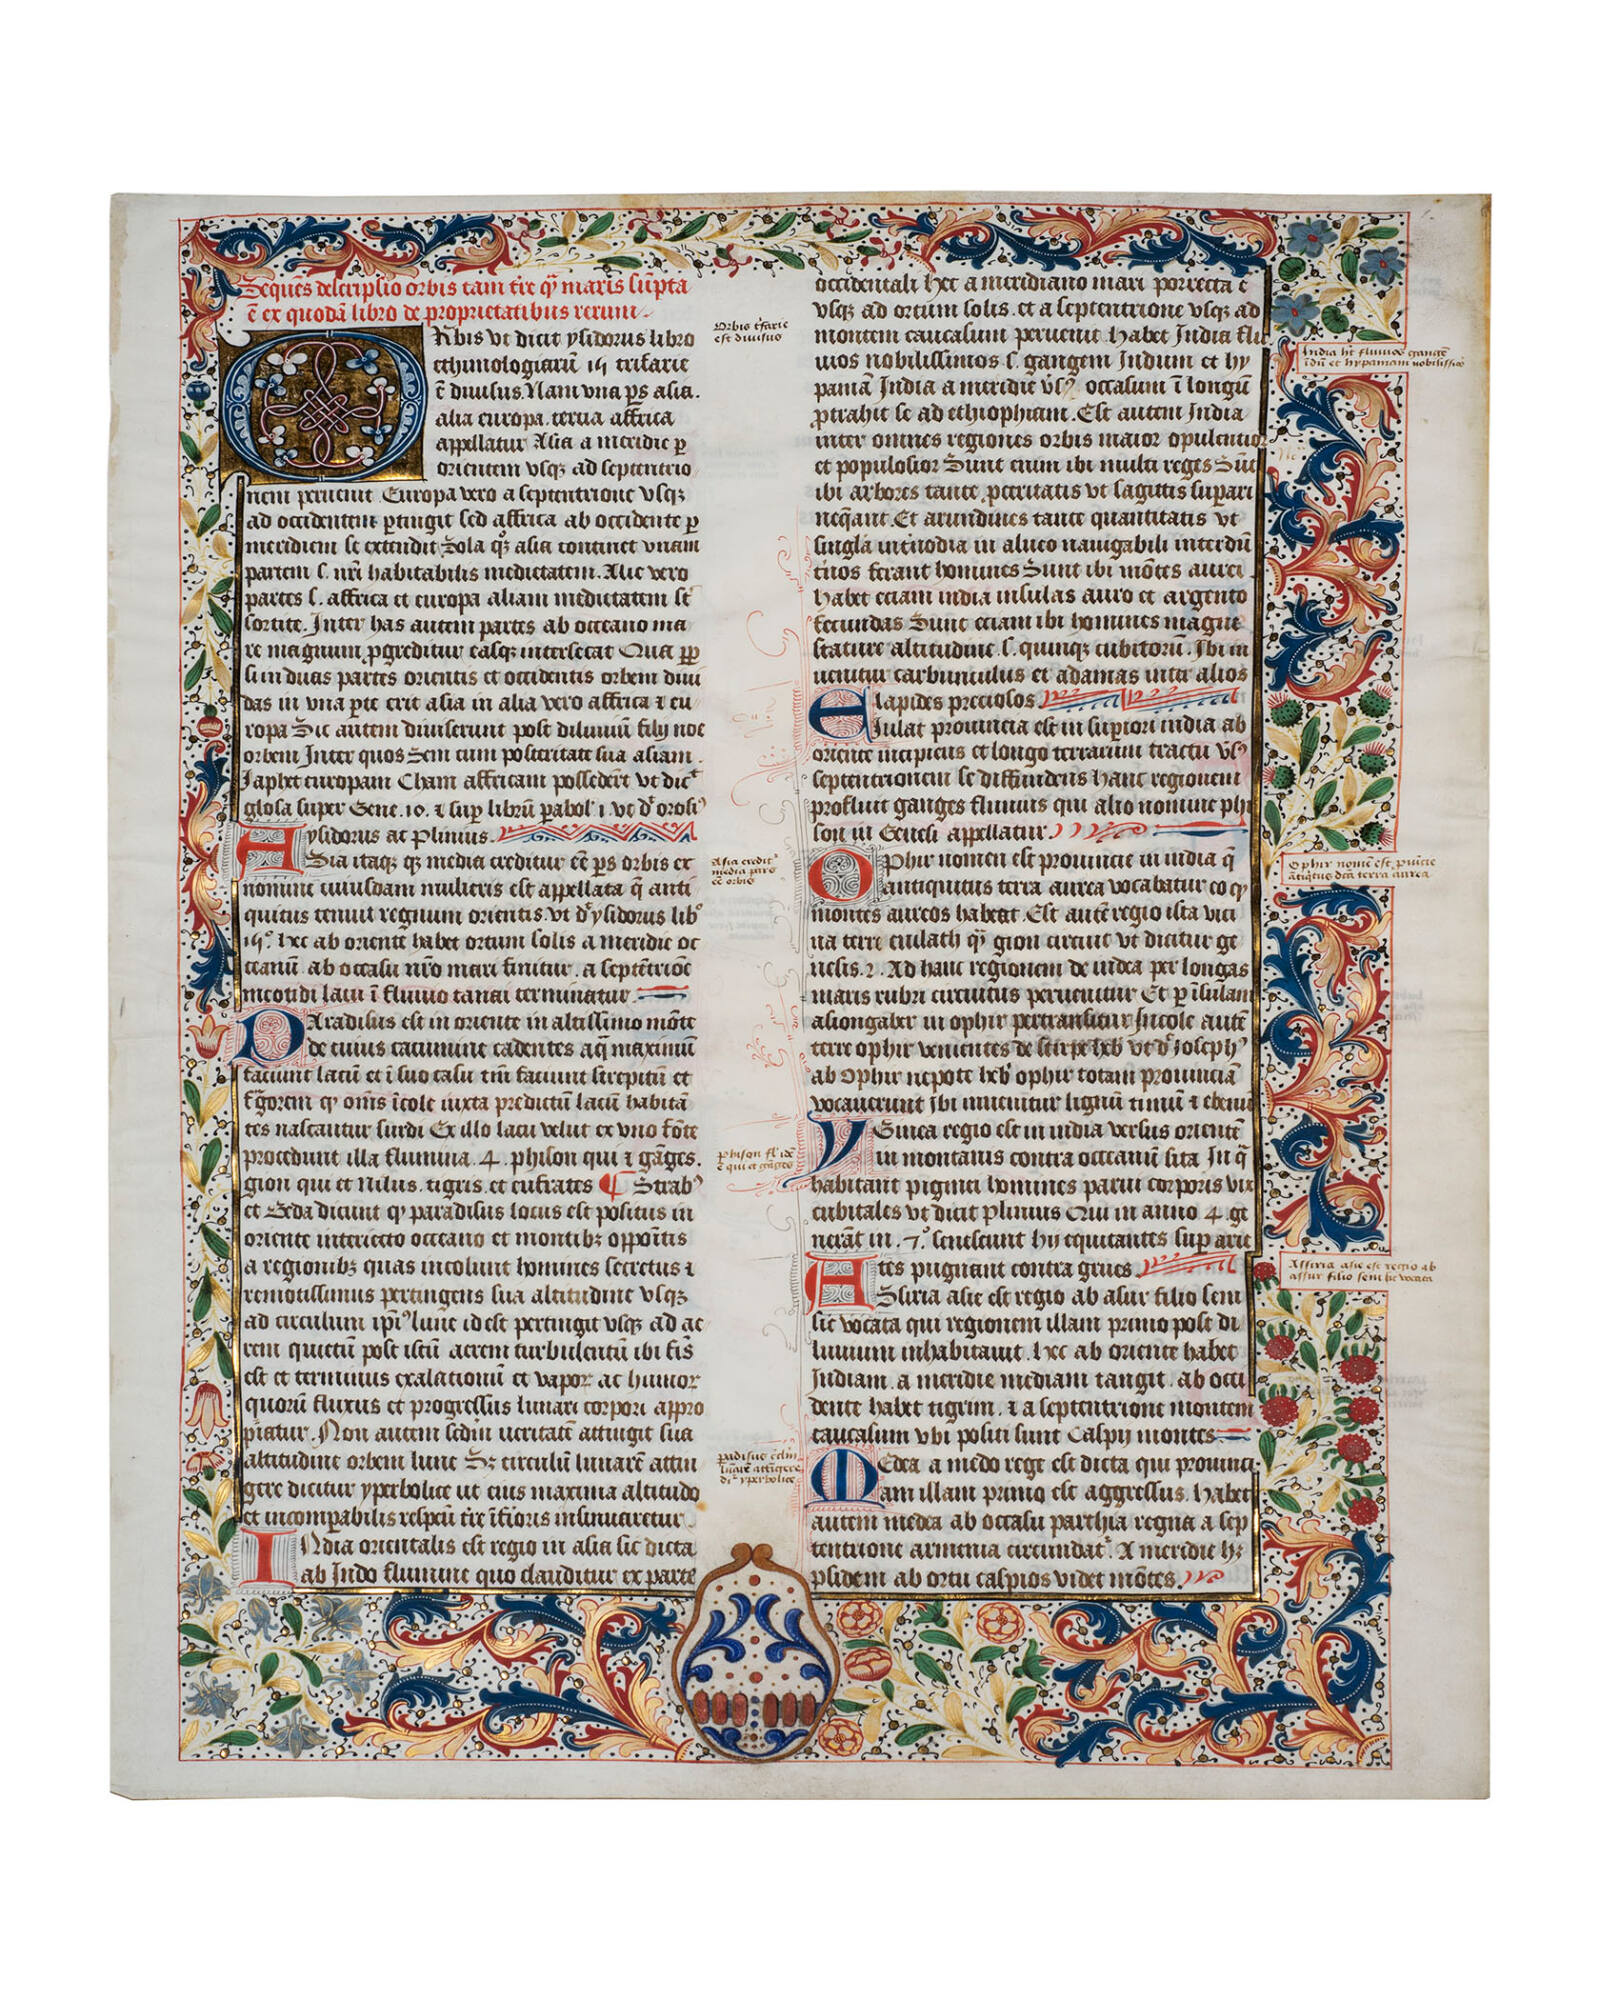 Seques descriptio orbis tam tr̄e qȝ maris sūpta
ē ex quodā libro de proprietatibus rerum
ORbis vt dicit ysidorus libro
ethimologiarū 15 trifarie
ē diuisus. Nam vna ꝑs asia.
alia europa. tercia affrica
appellatur Asia a meridie ꝑ
orientem vsqȝ ad septentrio
nem peruenit Europa vero a septentrione vsqȝ
ad occidentem ꝑtingit sed affrica ab occidente ꝑ
meridiem se extendit Sola qȝ asia continet vnam
partem s. nr̄i habitabilis medietatem. Alie vero
partes s. affrica et europa aliam medietatem st̄
sortite. Inter has autem partes ab occeano ma
re magnum ꝓgreditur easqȝ intersecat Qua ꝓp̄
si in duas partes orientis et occidentis orbem diui
das in vna ꝑte erit asia in alia vero affrica ⁊ eu
ropa Sic autem diuiserunt post diluuiū filij noe
orbem Inter quos Sem cum posteritate sua asiam.
Iaphet europam Cham affricam possedert̄ vt dic̄t
glosa super Gene. 10. ⁊ suꝑ librū ꝑabol' 1. vt d̄t orosi9
ysidorus ac Plinius.
ASia itaqȝ qȝ media creditur eē ꝑs orbis ex
nomine cuiusdam mulieris est appellata q̄ anti
quitus tenuit regnum orientis. vt d̄t ysidorus lib°
15°. hec ab oriente habet ortum solis a meridie oc
ceanū. ab occasu nr̄o mari finitur. a septētrióe
meotidi lacu ī fluuio tanai terminatur
PAradisus est in oriente in altissimo mōte
de cuius cacumine cadentes aq̄ maximū
faciunt lacū et ī suo casu tm̄ faciunt strepitū et
fr̄gorem qȝ om̄s īcole iuxta predictū lacū habitā
tes nascantur surdi Ex illo lacu velut ex vno fōte
procedunt illa flumina. 4. phison qui ⁊ gāges.
gion qui et nilus. tigris. et eufrates ¶ Strab9
et Beda dicunt qȝ paradisus locus est positus in
oriente interiecto occeano et montibȝ oppōitis
a regionibȝ quas incolunt homines secretus ⁊
remotissimus pertingens sua altitudine vsqȝ
ad circulum ip̄i9 lune id est pertingit vsqȝ ad ae
rem quietū post istū aerem turbulentū ibi fīs
est et terminus exalationū et vapor ac humor
quorū fluxus et progressus lunari corpori appro
p̄iatur. Non autem scdm̄ ueritatē attingit sua
altitudine orbem lune Sȝ circulū lunarē attin
gere dicitur yperbolice ut eius maxima altitudo
et incomꝑabilis respcū tr̄e īfīoris insinuaretur
INdia orientalis est regio in asia sic dicta
ab Indo flumine quo clauditur ex parte
Orbis t̄farie
est diuisus
Asia credit̄
media pars
eē orbis
Phison fl' idē
ē qui et gāges
padisus cclm̄
lūarē attīgere
d̄r yperbolice
occidentali hec a meridiano mari porrecta ē
vsqȝ ad ortum solis. et a septentrione vsqȝ ad
montem caucasum peruenit. Habet India flu
uios nobilissimos s. gangem Indum et hy
paniā India a meridie vsqȝ occasum ī longū
ꝓtrahit se ad ethiophiam. Est autem India
inter omnes regiones orbis maior opulentior
et populosior Sunt enim ibi multi reges Sūt
ibi arbores tante ꝓceritatis vt sagittis suꝑari
neq̄ant. Et arundines tante quantitatis vt
singla int̄nodia in alueo nauigabili interdū
t̄nos ferant homines Sunt ibi mōtes aurei
Habet eciam india insulas auro et argento
fecundas Sunt eciam ibi homines magne
stature altitudine s. quinqȝ cubitorū. Ibi in
uenitur carbunculus et adamas inter alios
lapides preciosos.
EUilat prouincia est in suꝑiori india ab
oriente incipiens et longo terrarum tractu vsqȝ
septentrionem se diffundens hanc regionem
profluit ganges fluuius qui alio nomine phi
son in Genesi appellatur.
OPhir nomen est prouincie in india q̄
antiquitus terra aurea vocabatur eo qȝ
montes aureos habeat. Est autē regio ista vici
na terre euilath qȝ gion circuit vt dicitur ge
nesis. 2. Ad hanc regionem de iudea per longas
maris rubri circuitus peruenitur Et ꝑ īsulam
asiongaber in ophir pertransitur Incole autē
terre ophir venientes de stirpe heb̄ vt d̄t Joseph9
ab Ophir nepote heb̄ ophir totam prouinciā
vocauerunt ibi inuenitur lignū tinuū ⁊ ebenū
VGinea regio est in india versus orientē
in montanis contra occeanū sita In q̄
habitant pigmei homines parui corporis vix
cubitales vt dicit Plinius Qui in anno 4. ge
nerāt in. 7°. senescunt hij equitantes suꝑ arie
tes pugnant contra grues.
ASsiria asie est regio ab asur filio sem
sic vocata qui regionem illam primo post di
luuium inhabitauit. hec ab oriente habet
Indiam. a meridie mediam tangit. ab occi
dente habet tigrim. ⁊ a septentrione montem
caucasum vbi positi sunt Caspij montes
MEdea a medo rege est dicta qui prouinci
am illam primo est aggressus. habet
autem medea ab occasu parthia regna a sep
tentrione armenia circundat̄. A meridie hȝ
ꝑsidem ab ortu caspios videt mōtes.
India ht̄ fluuios gangē
īdū et hypaniam nobilissīos
Ophir nomē est ꝓuīcie
ātiq̄tus dc̄a terra aurea
Assiria asie est regio ab
assur filio sem sic vocata